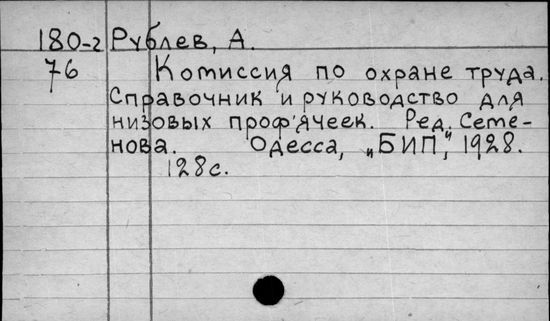 180-г Рублев, А.
76 Комиссия по охране труда.
Справочник и руководство для
низовых проф'ячеек. Ред. Семе-
нова. Одесса, „БИП", 1928.
128с.